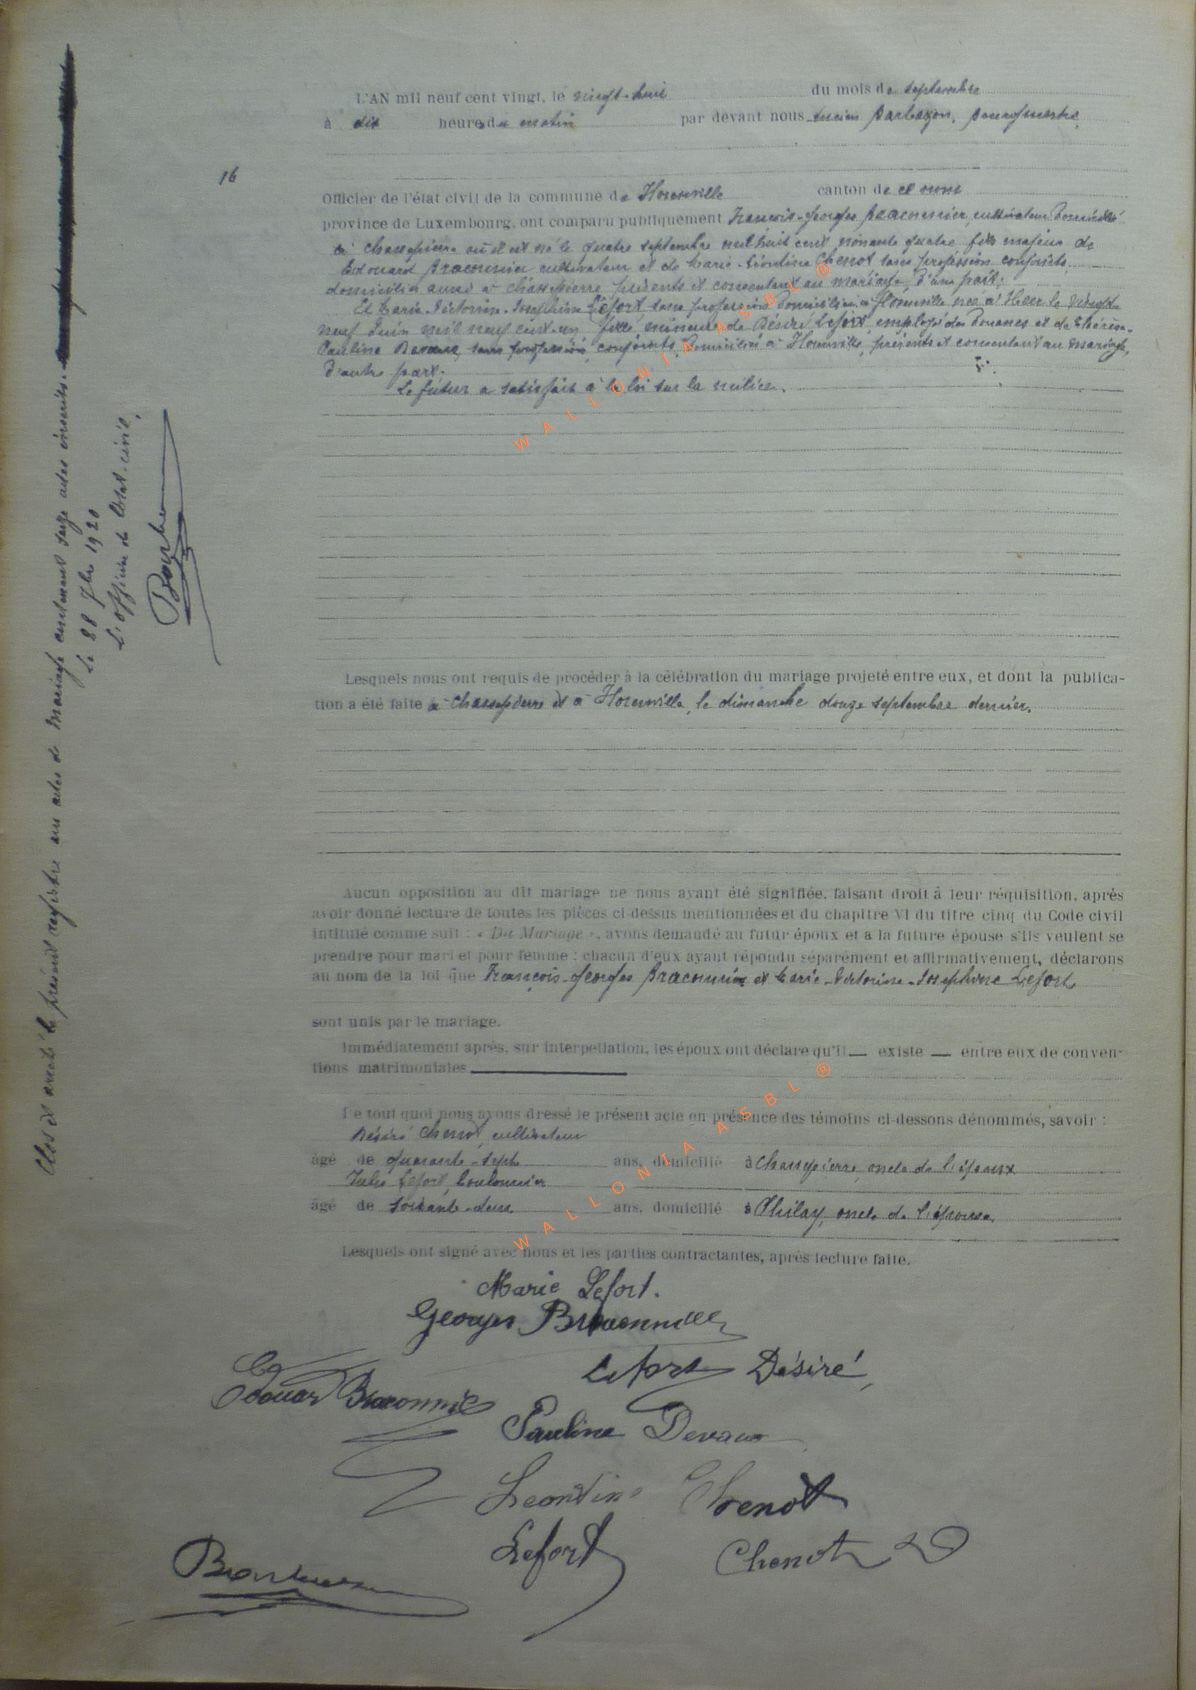 16
L'AN mil neuf cent vingt, le vingt-huit du mois de septembre
à dix heures du matin par devant nous Lucien Barbazon, Bourgmestre,
Officier de l'état civil de la commune de canton de
province de Luxembourg, ont comparu publiquement François-Georges Braconnier, cultivateur domicilié
à Chassepierre où il est né le quatre septembre mil huit cent nonante quatre fils majeur de
Edouard Braconnier cultivateur et de Marie-Léontine Chenot sans profession conjoints
domiciliés aussi à Chassepierre présents et consentant au mariage, d'une part;
Et Marie-Victorine-Joséphine Lefort, sans profession domiciliée à née à Heer le vingt
neuf Juin mil neuf cent un, fille mineure de Désiré Lefort employé des Douanes et de
Pauline Devaux, sans profession conjoints, domiciliés à présents et consentant au mariage,
d'autre part.
Le futur a satisfait à la loi sur la milice.
Lesquels nous ont requis de procéder à la célébration du mariage projeté entre eux, et dont la publica-
tion a été faite à Chassepierre et à le dimanche douze septembre dernier.
Aucun opposition au dit mariage ne nous ayant été signifiée, faisant droit à leur réquisition, après
avoir donné lecture de toutes les pièces ci-dessus mentionnées et du chapitre VI du titre cinq du Code civil
intitulé comme suit : « Du Mariage », avons demandé au futur époux et a la future épouse s'ils veulent se
prendre pour mari et pour femme : chacun d'eux ayant répondu séparément et affirmativement, déclarons
au nom de la loi que François-Georges Braconnier et Marie-Victorine-Joséphine Lefort
sont unis par le mariage.
Immédiatement après, sur interpellation, les époux ont déclaré qu'il — existe — entre eux de conven-
tions matrimoniales
De tout quoi nous avons dressé le présent acte en présence des témoins ci-dessons dénommés, savoir :
Désiré Chenot, cultivateur
âgé de quarante-sept ans, domicilié à Chassepierre, oncle de l'époux
Jules Lefort,
âgé de soixante-deux ans, domicilié à Thilay, oncle de l'épouse
Lesquels ont signé avec nous et les parties contractantes, après lecture faite.
Marie Lefort.
Georges Braconnier
Lefort Désiré,
Edouard Braconnier
Pauline Devaux
Leontine Chenot
Lefort
Chenot D
Clos et arrêté le présent registre aux actes de Mariage contenant seize actes inscrits.
Le 28 7bre 1920
L'officier de l'état-civil,
WALLONIA ASBL ®
WALLONIA ASBL ®